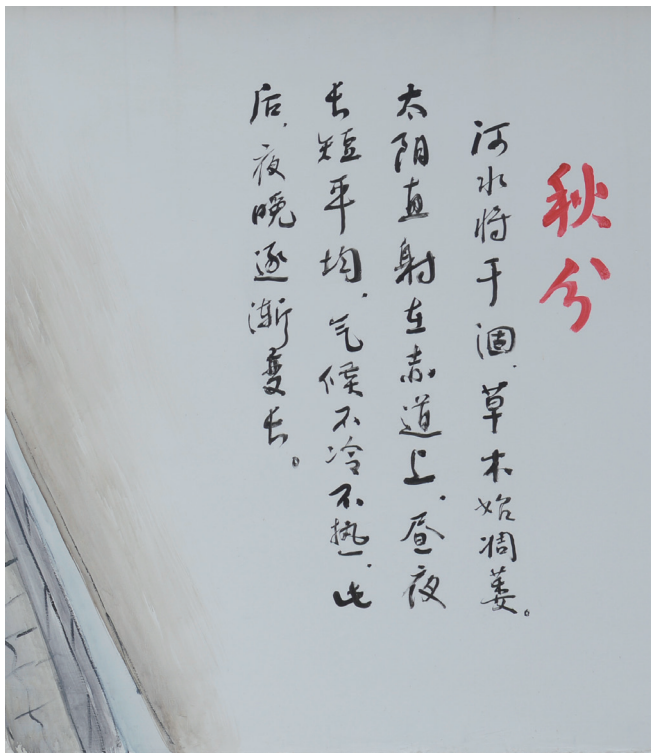 秋分
河水将干涸，草木始凋萎。
太阳直射在赤道上，昼夜
长短平均，气候不冷不热，此
后，夜晚逐渐变长。